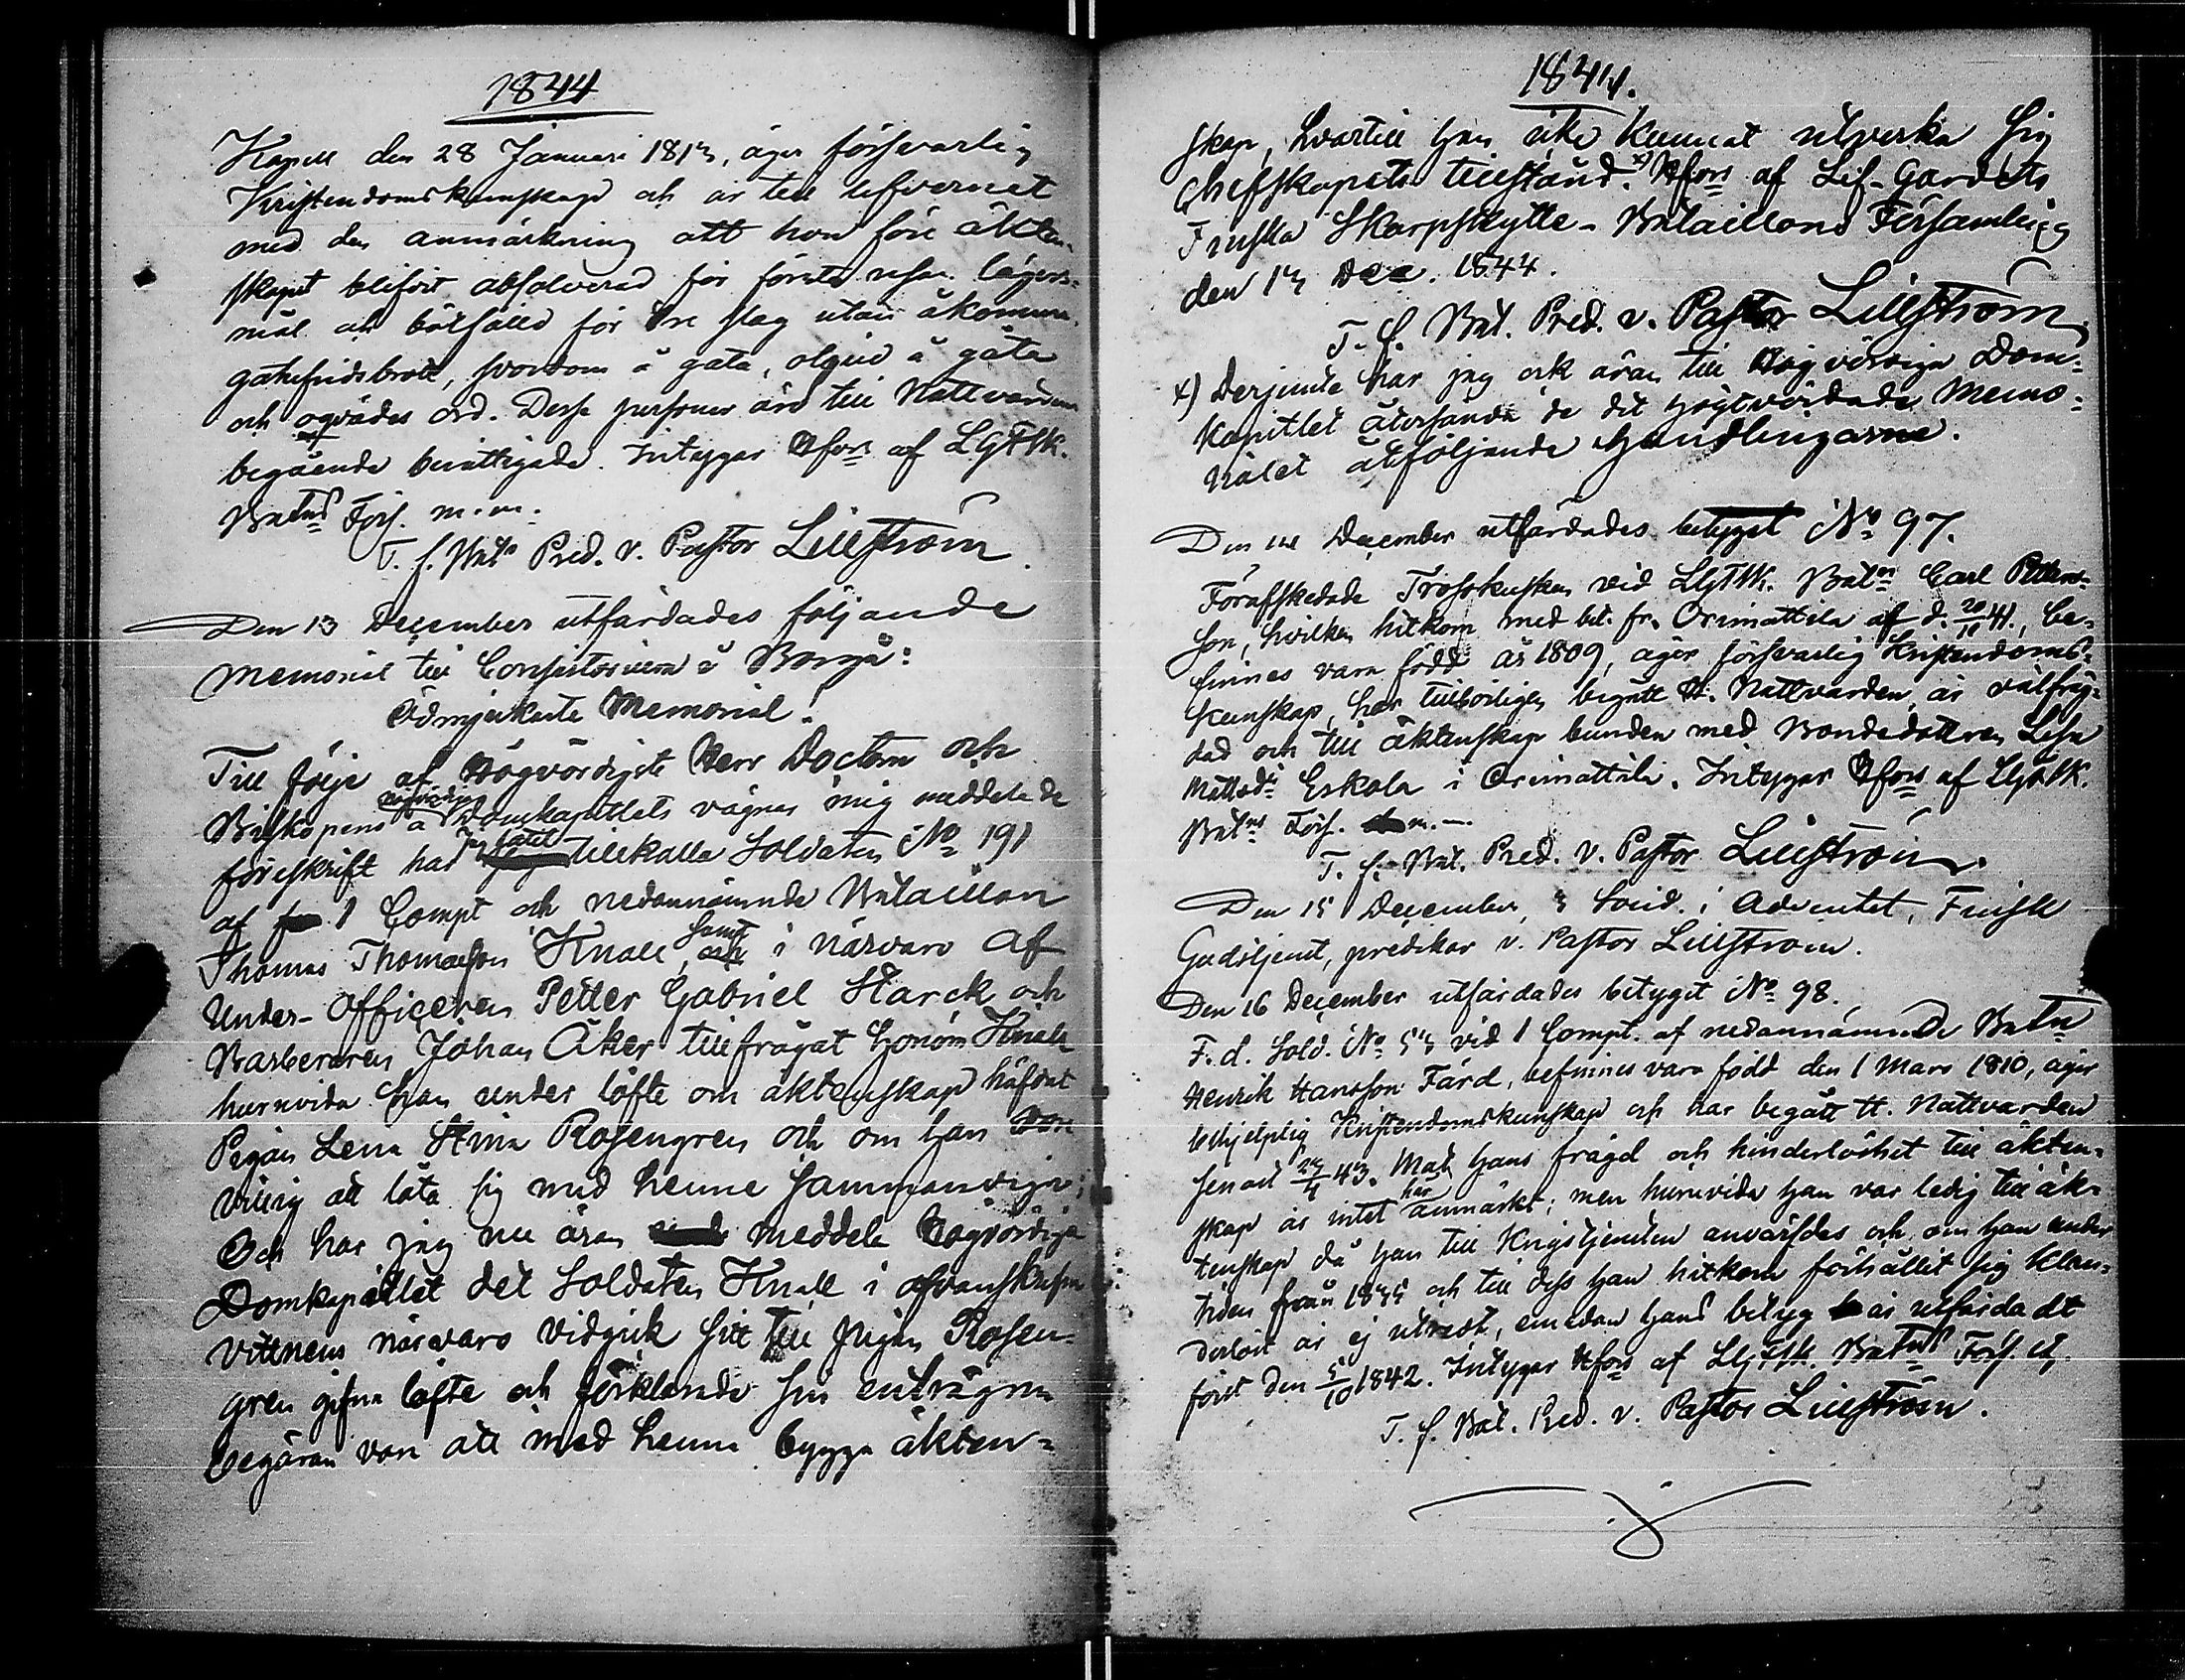 1844
Kapell den 28 Januari 1813, äger försvarlig
Kristendomskunskap och är till lefvernet
med den anmärkning att hon före äkten-
skapet blifvit absolverad för första resan lägers-
mål och bötfälld för tre slag utan åkomma,
gatufridsbrott, svordom å gata, oljud å gata
och oqvädes ord. Dessa personer äro till Nattvardens
begående berättigade. Intygar Hfors af LGFSk.
Batns Förs. m.m.
T. f. Bat. Pred. v. Pastor Lillström
Den 13 December utfärdades följande
Memorial till Consistorium å Borgå:
Ödmjukaste Memorial!
Till följe af Högvördigste Herr Doctorn och
Biskopens å högvördiga Domkapitlets vägnar mig meddelade
föreskrift har Jag låtit tillkalla Soldaten No 191
af 1 Compt och nedannämnde Bataillon
Thomas Thomasson Knall, samt i närvaro af
Under-Officeren Petter Gabriel Starck och
Barberaren Johan Åker tillfrågat honom Knall
huruvida han under löfte om äktenskap häfdat
Pigan Lena Stina Rosengren och om han vore
villig att låta sig med henne sammanviga;
Och har jag nu äran meddela Högvördiga
Domkapitlet det Soldaten Knall i
vittnens närvaro vidgick sitt till pigan Rosen-
gren gifna löfte och förklarade sin enträgna
begäran vara att med henne bygga äkten-
1844.
skap, hvartill han icke kunnat utverka sig
Chefskapets tillstånd. x) Hfors af Lif-Gardets
Finska Skarpskytte-Bataillons Församling
den 13 Dec. 1844.
T. f. Bat. Pred. v. Pastor Lillström
x) Derjemte har jag ock äran till Högvördiga Dom-
Kapitlet återsända de det högtvördade Memo-
rialet åtföljande Handlingarne.
Den 14 December utfärdades betyget No 97.
Förafskedade Trosskusken vid LGFSk. Batn Carl Petters-
son, hvilken hitkom med bet. fr. Orimattila af d. 20/10 41, be-
finnes vara född år 1809, äger försvarlig Kristendoms-
kunskap, har tillbörligen begått H. Nattvarden, är välfräj-
dad och till äktenskap bunden med Bondedottren Lesa
Mattsdr Eskola i Orimattila. Intygar Hfors af LGFSk.
Batns Förs. m.—
T. f. Bat. Pred. v. Pastor Lillström.
Den 15 December, 3 Sönd. i Adventet, Finsk
Gudstjenst, predikar v. Pastor Lillström.
Den 16 December utfärdades betyget No 98.
F. d. Sold. No 53 vid 1 Compt. af nedannämnde Batn
Henrik Hansson Färd, befinnes vara född den 1 Mars 1810, äger
behjelplig Kristendomskunskap och har begått H. Nattvarden
senast 43. Mot hans frägd och hinderlöshet till äkten-
skap är intet här anmärkt; men huruvida han var ledig till äk-
tenskap då han till Krigstjensten anvärfdes och om han under
tiden från 1835 och till dess han hitkom förhållit sig klan-
derlöst är ej utredt, emedan hans betyg är utfärdadt
först den 5/10 1842. Intygar Hfors af LGFSk. Batns Förs.
T. f. Bat. Pred. v. Pastor Lillström.